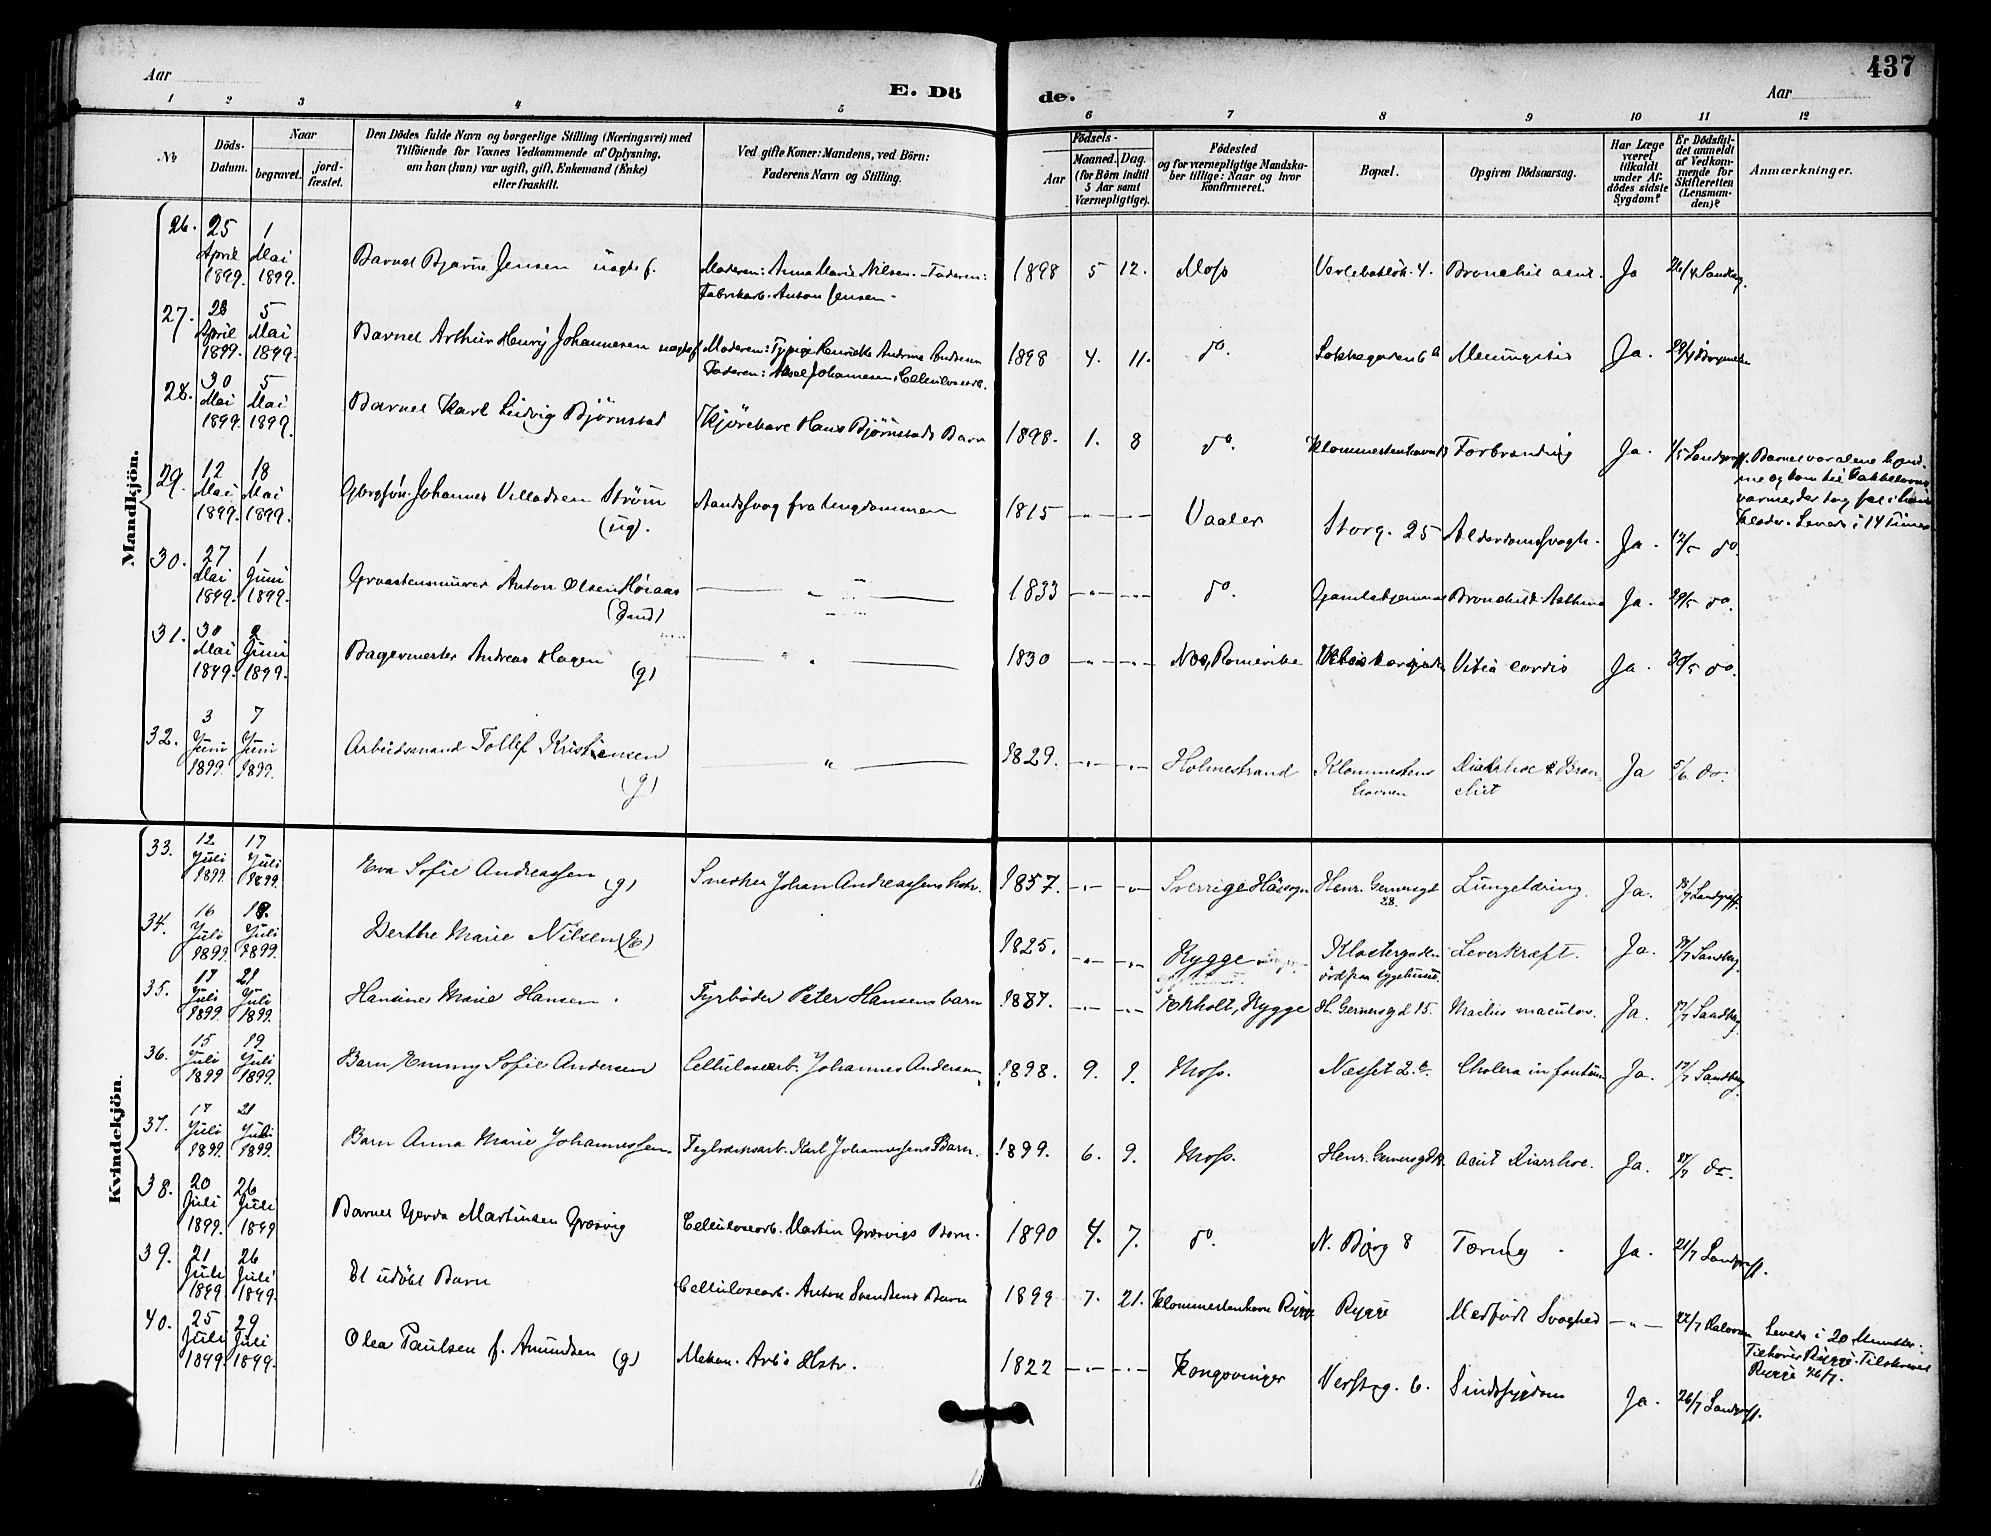 Aar
E. Dö
de.
Aar
437
1 2 3 4 5 6 7 8 9 10 11 12
No
Döds-Datum.
Naar
begravet.
jord-fæstet.
Den Dödes fulde Navn og borgerlige Stilling (Næringsvei) med
Tilföiende for Voxnes Vedkommende af Oplysning,
om han (hun) var ugift, gift, Enkemand (Enke)
eller fraskilt.
Ved gifte Koner: Mandens, ved Börn:
Faderens Navn og Stilling.
Födsels-
Aar
Maaned. Dag.
(for Börn indtil
5 Aar samt
Værnepligtige).
Födested
og for værnepligtige Mandska-
ber tillige: Naar og hvor
konfirmeret.
Bopæl.
Opgiven Dödsaarsag.
Har Læge
været
tilkaldt
under Af-
dödes sidste
Sygdom?
Er Dödsfal-
det anmeldt
af Vedkom-
mende for
Skifteretten
(Lensman-
den)?
Anmærkninger.
Mandkjön.
26. 25 April 1899. 1 Mai 1899. Barnet Bjarne Jensen uægte f. Moderen: Anna Marie Nilsen. - Faderen:
Fabrikarb. Anton Jensen - 1898 5 12. Moss 4. Bronchit acut. Ja 26/4 Sandberg.
27. 28 April 1899. 5 Mai 1899. Barnet Arthur Henry Johannesen uægte f. Moderen: Henriette
Faderen: Aksel Johannesen, Cellulosearb. 1898 4. 11. do. Meningitis Ja. 29/4
28. 30 Mai 1899. 5 Mai 1899. Barnet Karl Ludvig Björnstad Kjörekare Hans Björnstads Barn 1898. 1. 8 do. Klommestenhavn Forbrænding Ja. 1/5 Landgraff. Barnet var alene hjem-
me og kom til Kakkelovns
varme, der tog fat i hans
Klæder. Levede i 14 Timer
29. 12 Mai 1899. 18 Mai 1899. Johannes Villadsen Ström
(ug). Aandssvag fra Ungdommen 1815 -"- -"- Vaaler Storg. 25 Alderdomssvagh. Ja. 12/5 do.
30. 27 Mai 1899. 1 Juni 1899. Graastensmurer Anton Olsen Höiaas
" 1833 -"- -"- do. Gamlehjemmet Bronchit. Asthma Ja. 29/5 do.
31. 30 Mai 1899. 2 Juni 1899. Bagermester Andreas Hagen
(g) " 1830 -"- -"- Nes, Romerike Vitia cordis Ja. 30/5 do.
32. 3 Juni 1899. 7 Juni 1899. Arbeidsmand Tollef Kristiansen
(g) " 1829. -"- -"- Holmestrand Klommestens
havnen Diarrhoe & Bron-
chit Ja 5/6 do.
Kvindekjön.
33. 12 Juli 1899. 17 Juli 1899. Eva Sofie Andreassen (g) Snedker Johan Andreassens hstr. 1857. -"- -"- Sverrige Henr. Gernersgd
28. Lungetæring. Ja. 13/7 Landgraff.
34. 16 Juli 1899. 18. Juli 1899. Berthe Marie Nilsen (E) 1825. -"- -"- Rygge Klostergaden
död paa sygehuset Leverkræft. Ja. 17/7 Sandberg.
35. 17 Juli 1899. 21 Juli 1899. Hansine Marie Hansen. Fyrböder Peter Hansens barn 1887. -"- -"- Ekholt, Rygge H. Gernersgd 15. Ja. 17/7 Sandberg.
36. 15 Juli 1899 19 Juli 1899. Barn Emmy Sofie Andersen Cellulosearb. Johannes Andersen 1898. 9. 9. Moss. Næsset 2. Cholera infantum Ja. 17/7 Sandberg.
37. 17 Juli 1899. 21 Juli 1899. Barn Anna Marie Johannessen Teglværksarb. Karl Johannessens Barn. 1899. 6. 9. Moss. Henr. Gernersgd Acut Diarrhoe. Ja. do.
38. 20 Juli 1899. 26 Juli 1899 Barnet Gerda Martinsen Græsvig Cellulosearb. Martin Græsvigs Barn. 1890 4. 7. do. N. Bjerg 8 Tæring. Ja. 21/7 Landgraff.
39. 21 Juli 1899. 26 Juli 1899. Et udöbt Barn Cellulosearb. Anton Svendsens Barn 1899 7. 21. Klommestenhavn Rygge Rygge Medfödt Svaghed -"- 22/7 Levede i 20 Minutter.
Tilhörer Rygge. Tilskrevet
Rygge 26/7.
40. 25 Juli 1899. 29 Juli 1899. Olea Paulsen f. Amundsen (g) Mekan. Arb. Hstr. 1822 -"- -"- Kongsvinger 6. Sindssygdom Ja. 26/7 Landgraff.